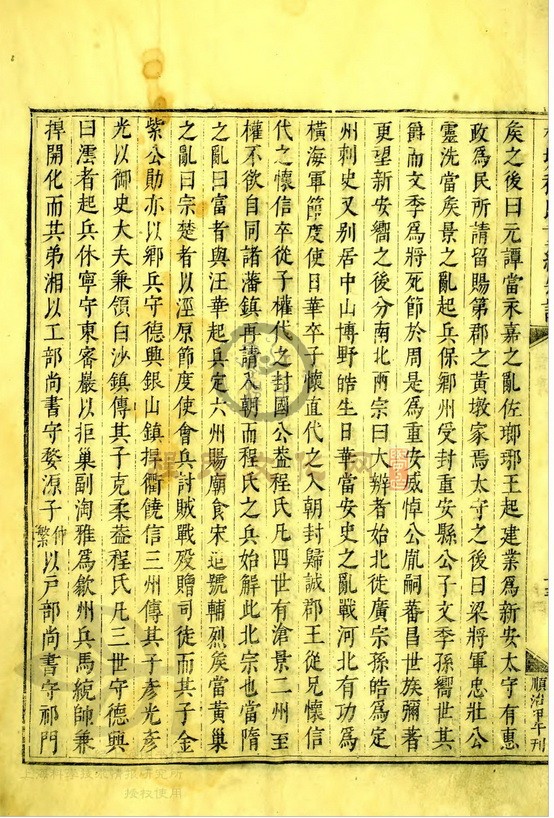 矦之後曰元譚當永嘉之亂佐瑯琊王起建業為新安太守有惠
政為民所請留賜第郡之黃墩家焉太守之後曰梁將軍忠壯公
靈洗當矦景之亂起兵保鄉州受封重安縣公子文季孫嚮世其
爵而文季為將死節於周是為重安威悼公胤嗣蕃昌世族彌著
更望新安嚮之後分南北兩宗曰大辨者始北徙廣宗孫皓為定
州刺史又別居中山博野皓生日華當安史之亂戰河北有功為
橫海軍節度使日華卒子懷直代之入朝封歸誠郡王從兄懷信
代之懷信卒從子權代之封國公葢程氏凡四世有滄景二州至
權不欲自同諸藩鎮再請入朝而程氏之兵始解此北宗也當隋
之亂曰富者與汪華起兵定六州賜廟食宋追號輔烈矦當黃巢
之亂曰宗楚者以涇原節度使會兵討賊戰歿贈司徒而其子金
紫公勛亦以鄉兵守德興銀山鎮捍衢饒信三州傳其子彥光彥
光以御史大夫兼領白沙鎮傳其子克柔葢程氏凡三世守德興
曰澐者起兵休寧守東審巖以拒巢副淘雅為歙州兵馬統帥兼
捍開化而其弟湘以工部尚書守婺源子仲繁以戶部尚書守祁門
順治 年刊
上海科學技術情報研究所
授权使用